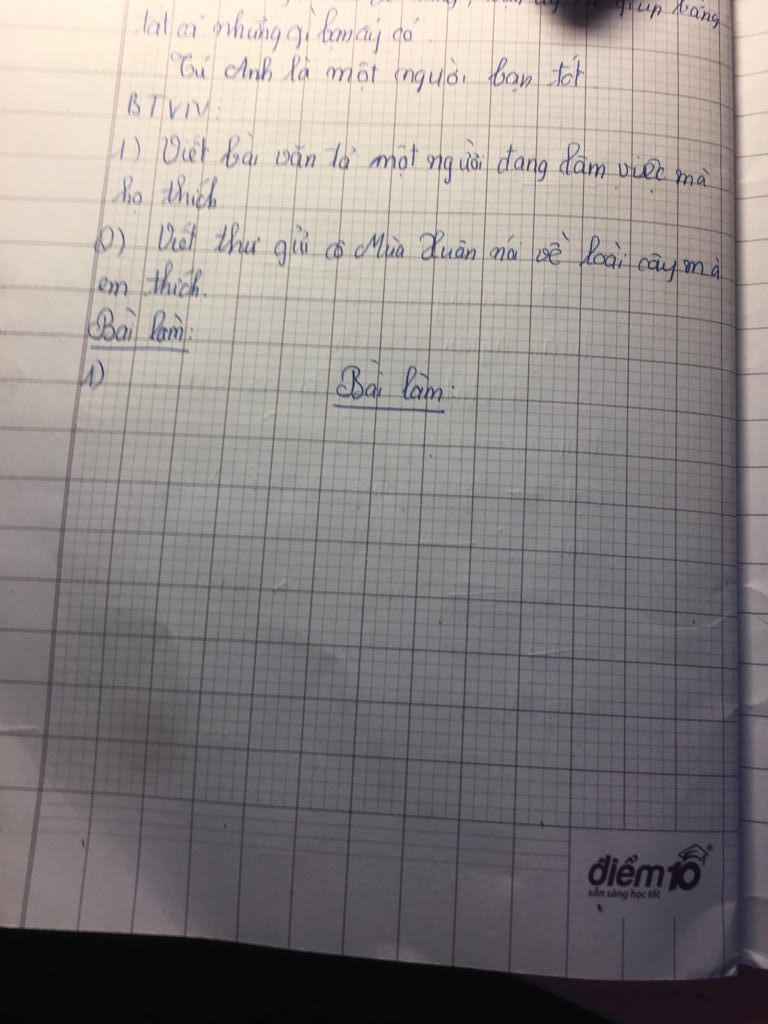 giúp bằng
tất cả những gì bạn ấy có.
Tú Anh là một người bạn tốt
BTVIV:
1) Viết bài văn tả một người đang làm việc mà
họ thích
2) Viết thư gửi cô Mùa Xuân nói về loài cây mà
em thích.
Bài làm:
1) Bài làm:
điểm 10
sẵn sàng học tốt